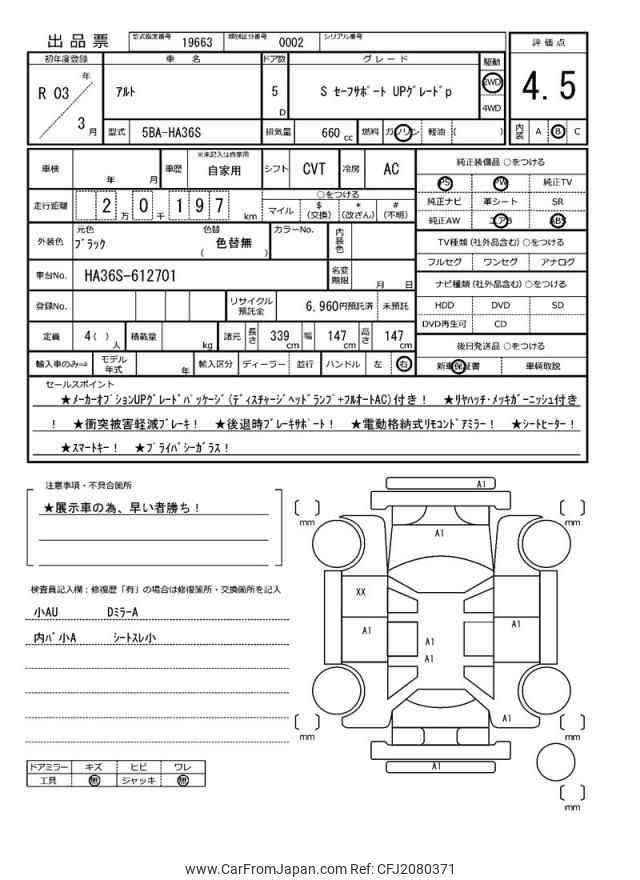 出品票 型式指定番号 19663 類別区分番号 0002 シリアル番号
評価点
4.5
内装 A B C
初年度登録 車名 ドア数 グレード 駆動
R 03 年 3 月
アルト 5 D S セーフサポート UPグレードp 2WD 4WD
型式 5BA-HA36S 排気量 660 cc 燃料 ガソリン 軽油 ( )
車検 年 月 車歴 ※未記入は自家用 自家用 シフト CVT 冷房 AC
走行距離 2 万 0 千 197 km ○をつける
マイル $ (交換) * (改ざん) # (不明)
外装色 元色 ブラック 色替 ( 色替無 ) カラーNo. 内装色
車台No. HA36S-612701 名変期限 月 日
登録No. リサイクル預託金 6,960円預託済 未預託
定員 4( ) 人 積載量 kg 諸元 長さ 339 cm 幅 147 cm 高さ 147 cm
輸入車のみ⇒ モデル年式 年 輸入区分 ディーラー 並行 ハンドル 左 右
純正装備品 ○をつける
PS PW 純正TV
純正ナビ 革シート SR
純正AW エアB ABS
TV種類(社外品含む)○をつける
フルセグ ワンセグ アナログ
ナビ種類(社外品含む)○をつける
HDD DVD SD
DVD再生可 CD
後日発送品 ○をつける
新車保証書 車輌取説
セールスポイント
★メーカーオプションUPグレードパッケージ(ディスチャージヘッドランプ+フルオートAC)付き! ★リヤハッチ・メッキガーニッシュ付き
! ★衝突被害軽減ブレーキ! ★後退時ブレーキサポート! ★電動格納式リモコンドアミラー! ★シートヒーター!
★スマートキー! ★プライバシーガラス!
注意事項・不具合箇所
★展示車の為、早い者勝ち!
検査員記入欄:修復歴「有」の場合は修復箇所・交換箇所を記入
小AU DミラーA
内バ小A シートスレ小
ドアミラー キズ ヒビ ワレ
工具 無 ジャッキ 無
A1
mm mm
A1
XX
A1 A1 A1
A1
A1
mm mm
A1
mm
www.CarFromJapan.com Ref: CFJ2080371